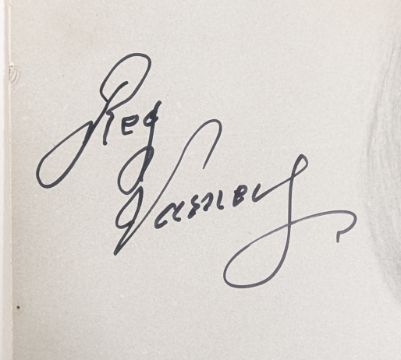 Reg
Varney